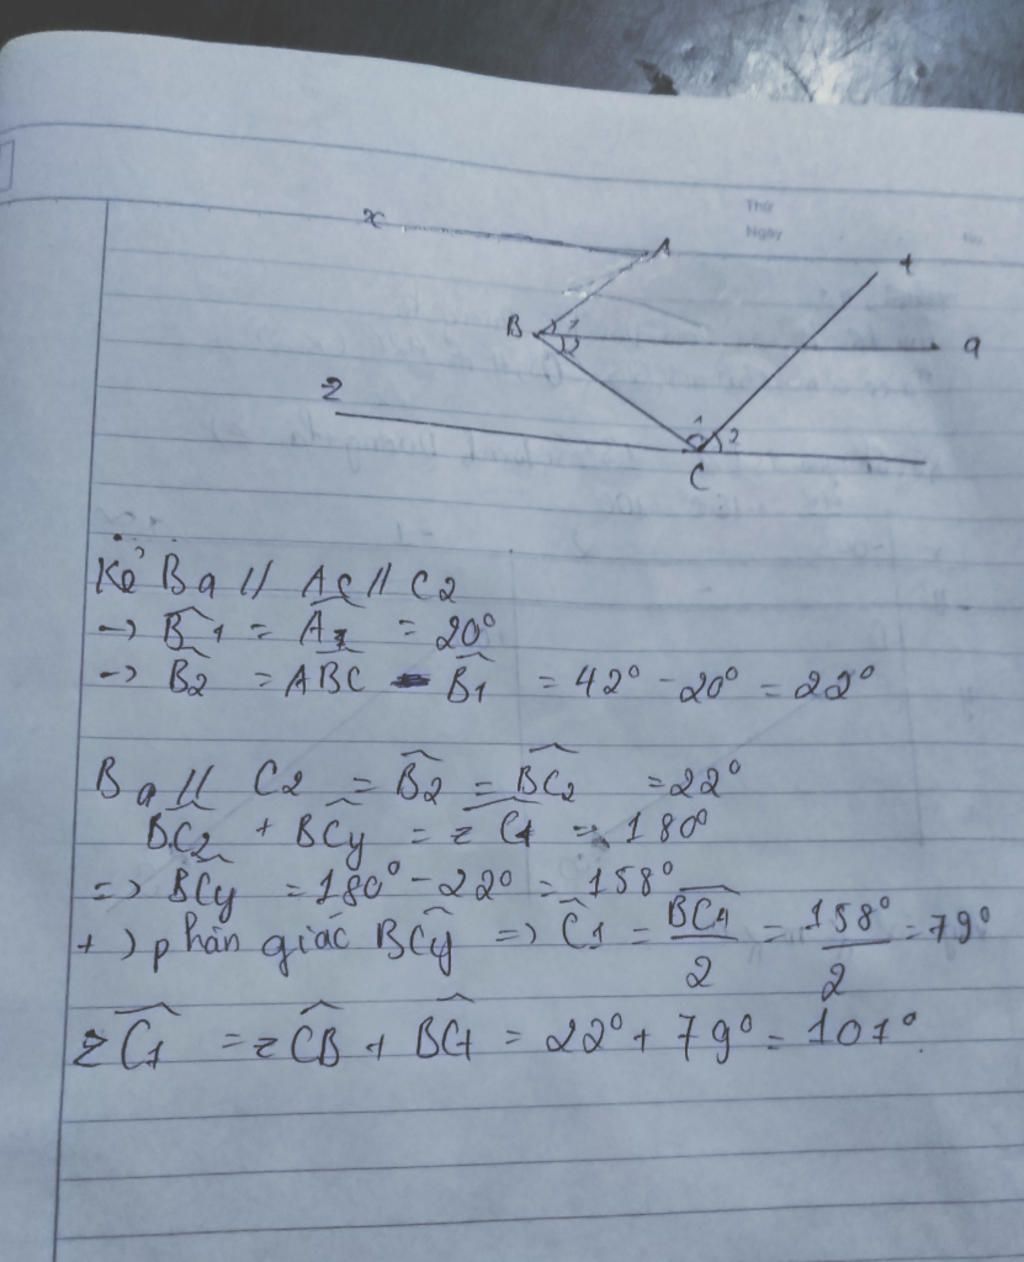 Thứ
Ngày
x
A
t
B
1
2
a
z
1
2
C
Kẻ Ba // Ac // Cz
→ B̂1 = Â1 = 20°
→ B̂2 = ABC - B̂1 = 42° - 20° = 22°
Ba // Cz = B̂2 = BCz = 22°
BCz + BCy = z Ct = 180°
=> BCy = 180° - 22° = 158°
+) phân giác BCy => Ĉ1 = BCy/2 = 158°/2 = 79°
zCt = zCB + BCt = 22° + 79° = 101°.